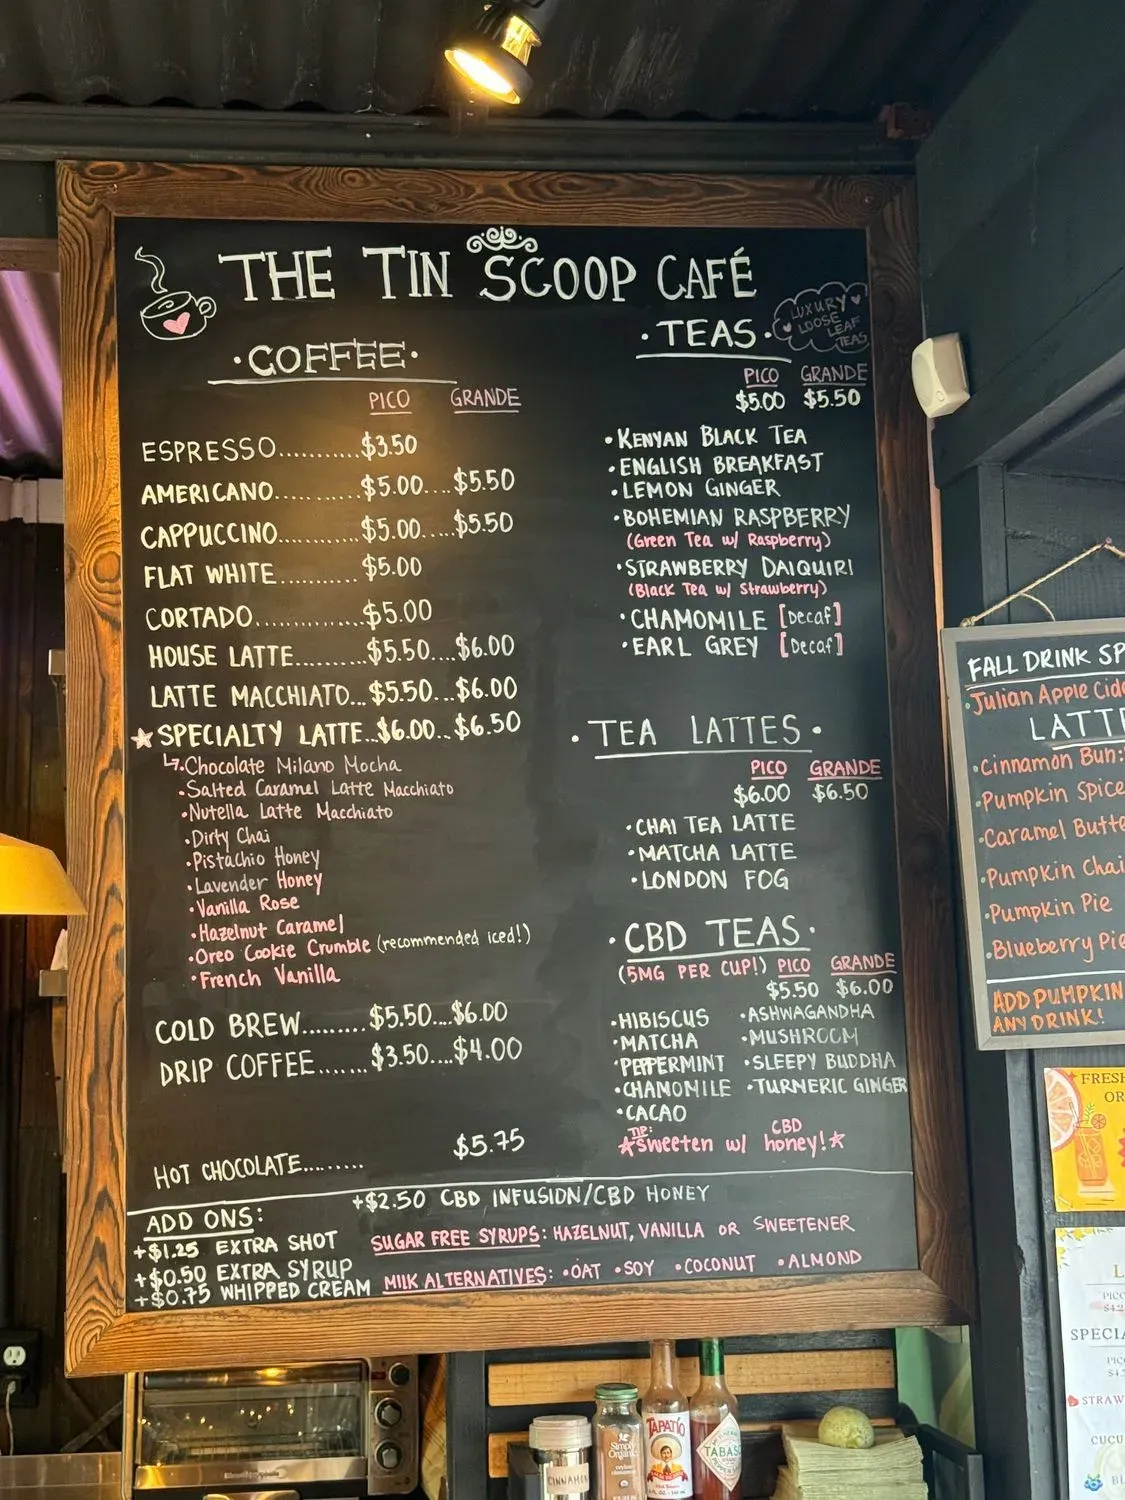 THE TIN SCOOP CAFÉ
·COFFEE·
PICO GRANDE
ESPRESSO...........$3.50
AMERICANO...........$5.00....$5.50
CAPPUCCINO...........$5.00.....$5.50
FLAT WHITE...........$5.00
CORTADO.............$5.00
HOUSE LATTE.........$5.50....$6.00
LATTE MACCHIATO...$5.50...$6.00
SPECIALTY LATTE..$6.00...$6.50
·Chocolate Milano Mocha
·Salted Caramel Latte Macchiato
·Nutella Latte Macchiato
·Dirty Chai
·Pistachio Honey
·Lavender Honey
·Vanilla Rose
·Hazelnut Caramel
·Oreo Cookie Crumble (recommended iced!)
·French Vanilla
COLD BREW.........$5.50....$6.00
DRIP COFFEE.......$3.50....$4.00
HOT CHOCOLATE......... $5.75
·TEAS·
LUXURY
LOOSE
LEAF
TEAS
PICO GRANDE
$5.00 $5.50
·KENYAN BLACK TEA
·ENGLISH BREAKFAST
·LEMON GINGER
·BOHEMIAN RASPBERRY
(Green Tea w/ Raspberry)
·STRAWBERRY DAIQUIRI
(Black Tea w/ Strawberry)
·CHAMOMILE [Decaf]
·EARL GREY [Decaf]
·TEA LATTES·
PICO GRANDE
$6.00 $6.50
·CHAI TEA LATTE
·MATCHA LATTE
·LONDON FOG
·CBD TEAS·
(5MG PER CUP!) PICO GRANDE
$5.50 $6.00
·HIBISCUS ·ASHWAGANDHA
·MATCHA ·MUSHROOM
·PEPPERMINT ·SLEEPY BUDDHA
·CHAMOMILE ·TURMERIC GINGER
·CACAO
TIP:
Sweeten w/ CBD honey!
+$2.50 CBD INFUSION/CBD HONEY
ADD ONS:
+$1.25 EXTRA SHOT
+$0.50 EXTRA SYRUP
+$0.75 WHIPPED CREAM
SUGAR FREE SYRUPS: HAZELNUT, VANILLA OR SWEETENER
MILK ALTERNATIVES: ·OAT ·SOY ·COCONUT ·ALMOND
FALL DRINK SP
·Julian Apple Cide
LATTE
·Cinnamon Bun
·Pumpkin Spice
·Caramel Butte
·Pumpkin Chai
·Pumpkin Pie
·Blueberry Pie
ADD PUMPKIN
ANY DRINK!
FRESH
OR
L
PICO
SPECIA
PIC
STRAW
CUCU
BL
CINNAMON
Simply
Organic
TAPATÍO
TABAS